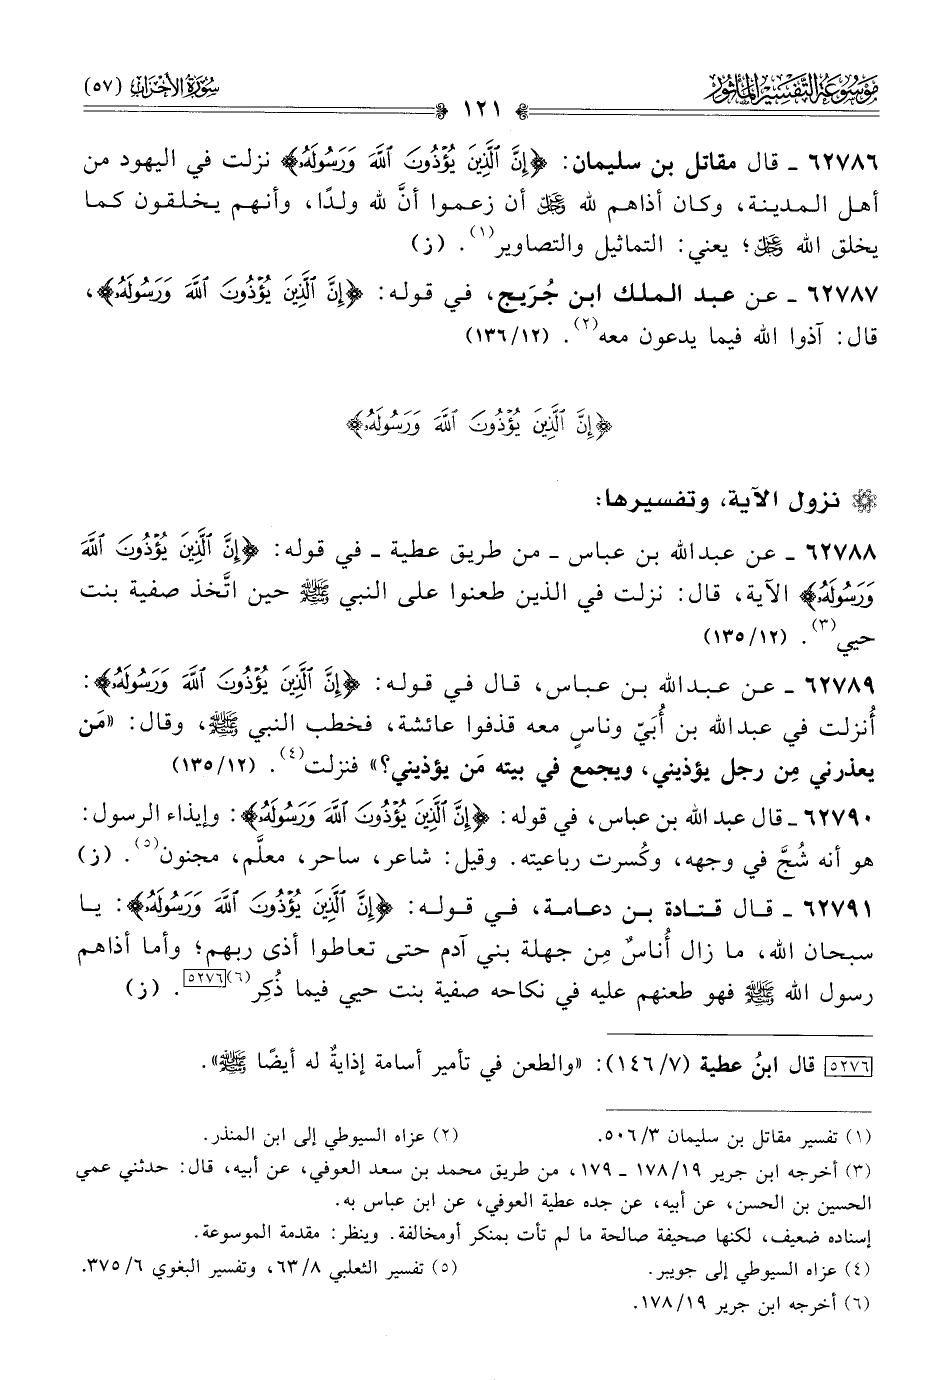 مَوْسُوعَةُ التَّفْسِيرِ الْمَأْثُورِ
١٢١
سُورَةُ الأَحْزَابِ (٥٧)
٦٢٧٨٦ ـ قال مقاتل بن سليمان: ﴿إِنَّ ٱلَّذِينَ يُؤْذُونَ ٱللَّهَ وَرَسُولَهُۥ﴾ نزلت في اليهود من
أهل المدينة، وكان أذاهم لله ﷿ أن زعموا أنَّ لله ولدًا، وأنهم يخلقون كما
يخلق الله ﷿؛ يعني: التماثيل والتصاوير(١). (ز)
٦٢٧٨٧ ـ عن عبد الملك ابن جُرَيج، في قوله: ﴿إِنَّ ٱلَّذِينَ يُؤْذُونَ ٱللَّهَ وَرَسُولَهُۥ﴾،
قال: آذوا الله فيما يدعون معه(٢). (١٣٦/١٢)
﴿إِنَّ ٱلَّذِينَ يُؤْذُونَ ٱللَّهَ وَرَسُولَهُۥ﴾
نزول الآية، وتفسيرها:
٦٢٧٨٨ ـ عن عبدالله بن عباس ـ من طريق عطية ـ في قوله: ﴿إِنَّ ٱلَّذِينَ يُؤْذُونَ ٱللَّهَ
وَرَسُولَهُۥ﴾ الآية، قال: نزلت في الذين طعنوا على النبي ﷺ حين اتَّخذ صفية بنت
حيي(٣). (١٣٥/١٢)
٦٢٧٨٩ ـ عن عبدالله بن عباس، قال في قوله: ﴿إِنَّ ٱلَّذِينَ يُؤْذُونَ ٱللَّهَ وَرَسُولَهُۥ﴾:
أُنزلت في عبدالله بن أُبَيّ وناسٍ معه قذفوا عائشة، فخطب النبي ﷺ، وقال: «مَن
يعذرني مِن رجل يؤذيني، ويجمع في بيته مَن يؤذيني؟» فنزلت(٤). (١٣٥/١٢)
٦٢٧٩٠ ـ قال عبدالله بن عباس، في قوله: ﴿إِنَّ ٱلَّذِينَ يُؤْذُونَ ٱللَّهَ وَرَسُولَهُۥ﴾: وإيذاء الرسول:
هو أنه شُجَّ في وجهه، وكُسرت رباعيته. وقيل: شاعر، ساحر، معلَّم، مجنون(٥). (ز)
٦٢٧٩١ ـ قال قتادة بن دعامة، في قوله: ﴿إِنَّ ٱلَّذِينَ يُؤْذُونَ ٱللَّهَ وَرَسُولَهُۥ﴾: يا
سبحان الله، ما زال أُناسٌ مِن جهلة بني آدم حتى تعاطوا أذى ربهم؛ وأما أذاهم
رسول الله ﷺ فهو طعنهم عليه في نكاحه صفية بنت حيي فيما ذُكِر(٦)[٥٢٧٦]. (ز)
[٥٢٧٦] قال ابنُ عطية (١٤٦/٧): «والطعن في تأمير أسامة إذايةٌ له أيضًا ﷺ».
(١) تفسير مقاتل بن سليمان ٥٠٦/٣.
(٢) عزاه السيوطي إلى ابن المنذر.
(٣) أخرجه ابن جرير ١٧٨/١٩ ـ ١٧٩، من طريق محمد بن سعد العوفي، عن أبيه، قال: حدثني عمي
الحسين بن الحسن، عن أبيه، عن جده عطية العوفي، عن ابن عباس به.
إسناده ضعيف، لكنها صحيفة صالحة ما لم تأت بمنكر أومخالفة. وينظر: مقدمة الموسوعة.
(٤) عزاه السيوطي إلى جويبر.
(٥) تفسير الثعلبي ٦٣/٨، وتفسير البغوي ٣٧٥/٦.
(٦) أخرجه ابن جرير ١٧٨/١٩.